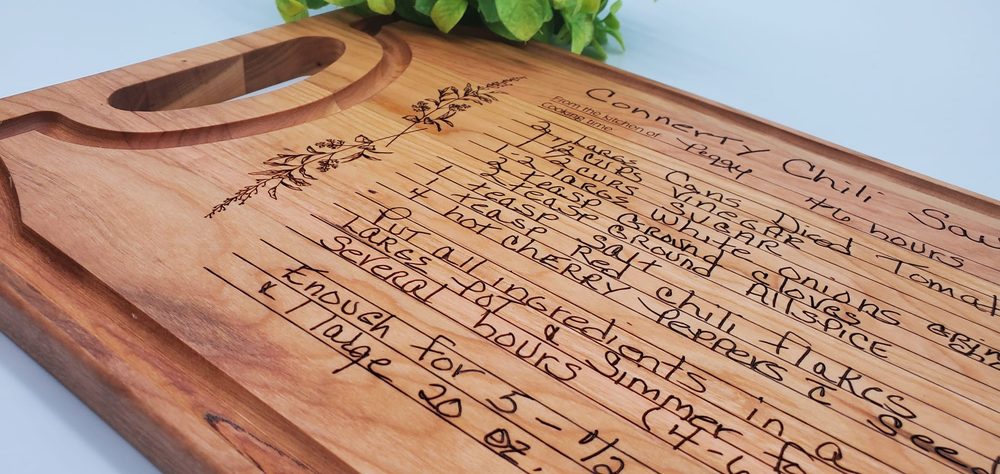 Connerty Chili Sau
From the kitchen of Peggy
Cooking time 4-6 hours
2 Large Cans Diced Tomat
1 1/2 cups Vinegar
1 1/2 cups SUGAR
2 Large White onions
2 Teasp Ground cloves
1 teasp Ground Allspice
1 teasp salt
4 hot cherry Peppers & See
Red chili flakes
Put all ingredients in a
Large pot & Simmer f
Several hours (4-6
Enough for 5 - 1/2
& 1 large 20 oz.